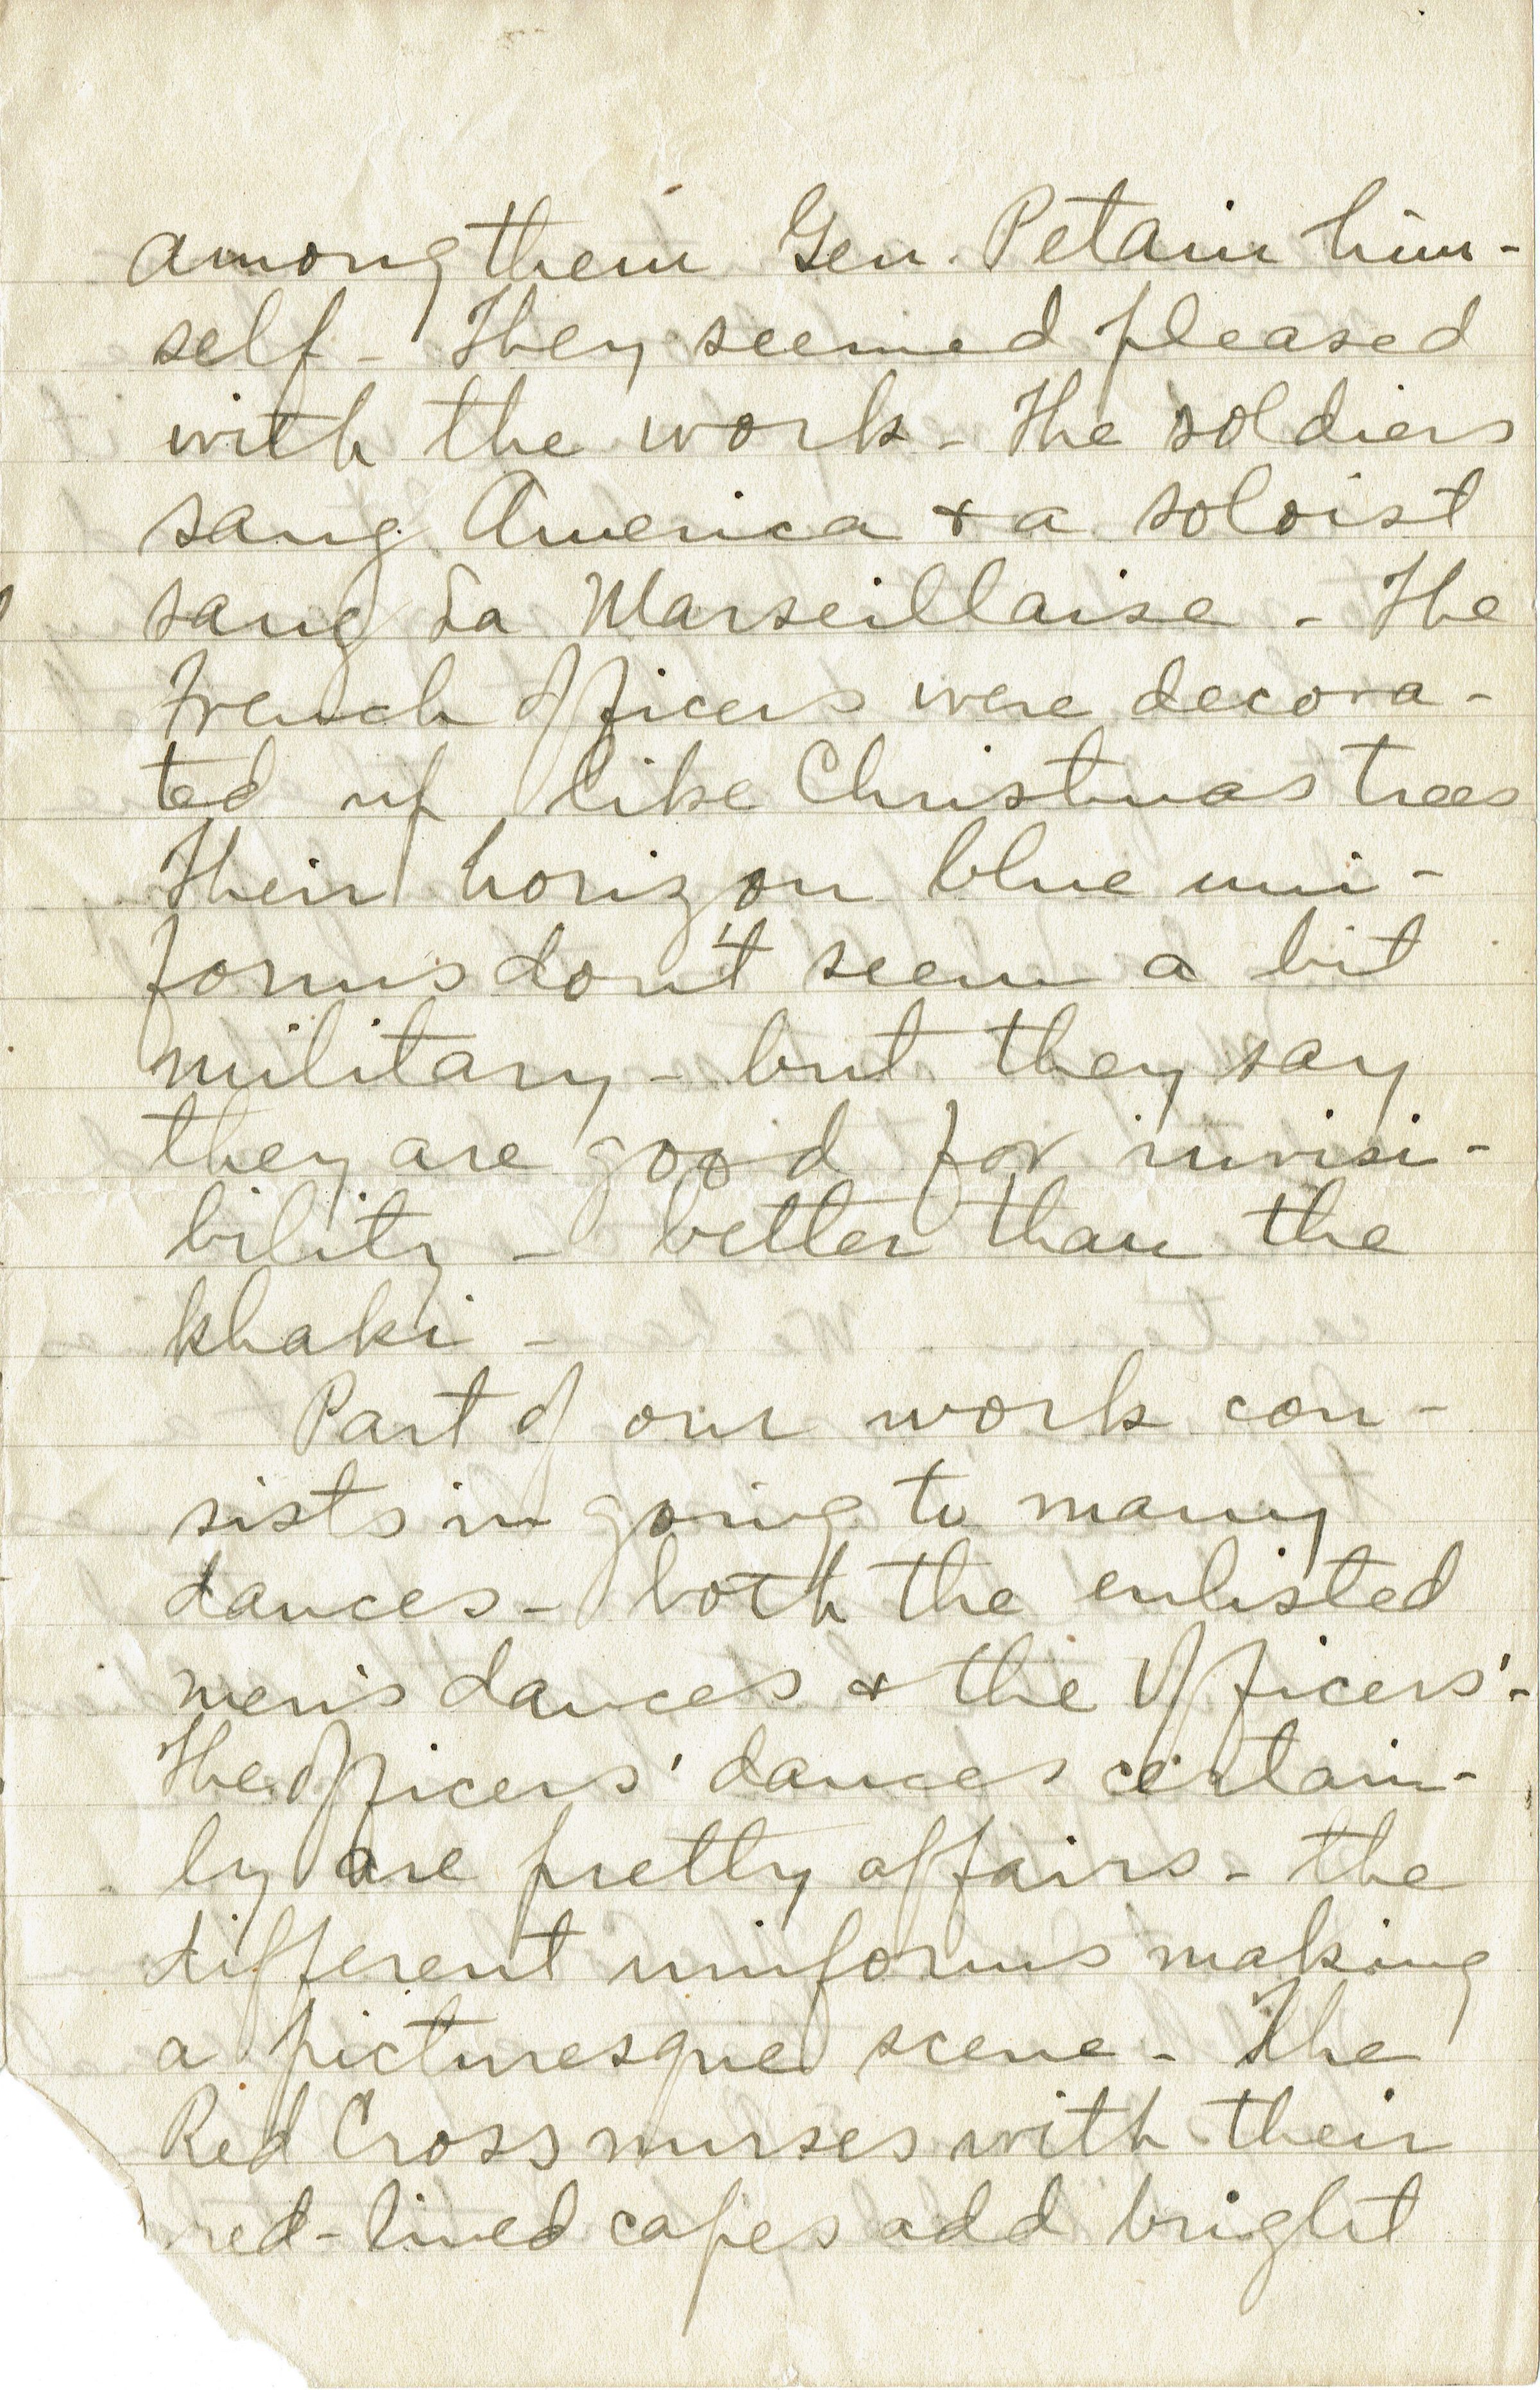 among them Gen. Petain him-
self - They seemed pleased
with the work - The soldiers
sang America + a soloist
sang La Marseillaise - The
French officers were decora-
ted up like Christmas trees
Their horizon blue uni-
forms don't seem a bit
military - but they say
they are good for invisi-
bility - better than the
khaki -
Part of our work con-
sists in going to many
dances - both the enlisted
men's dances + the officers'-
The officers' dances certain-
ly are pretty affairs - the
different uniforms making
a picturesque scene - The
Red Cross nurses with their
red-lined capes add bright